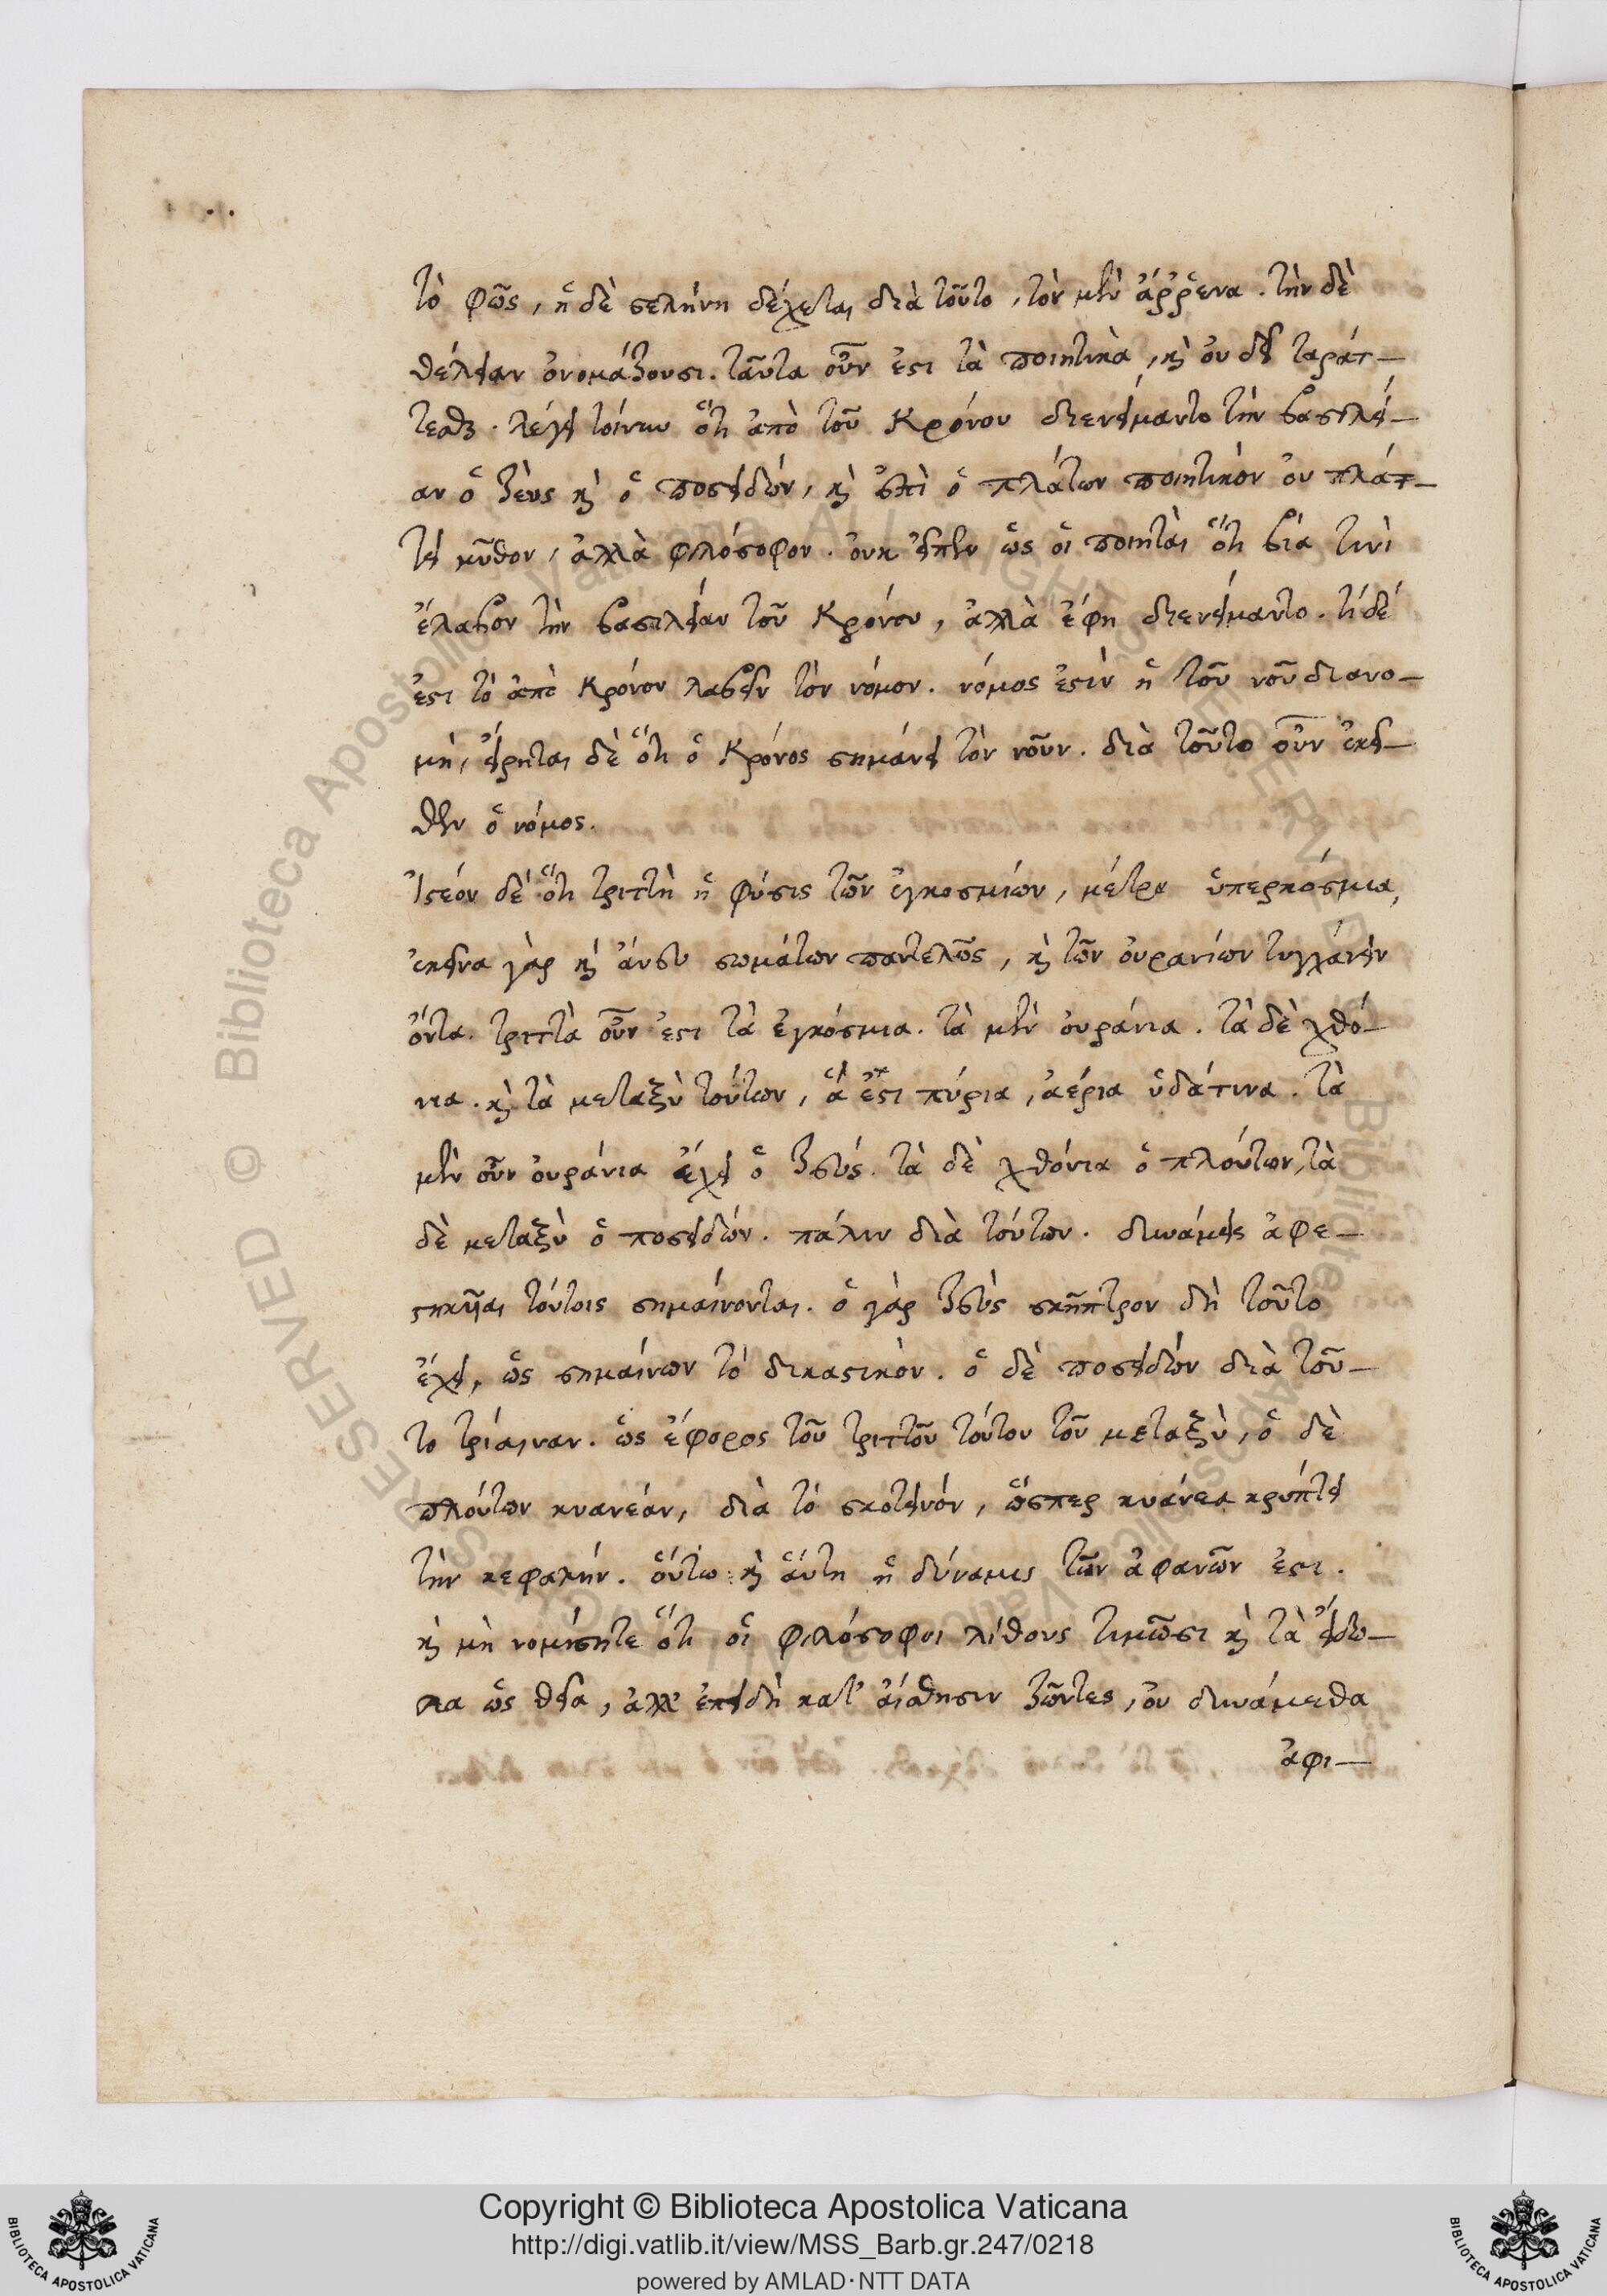 τὸ φῶς, ἡ δὲ σελήνη δέχεται, διὰ τοῦτο, τὸν μὲν ἄῤῥενα. τὴν δὲ
θέλειαν ὀνομάζουσι. ταῦτα οὖν ἐστι τὰ ποιητικὰ, καὶ οὐ δεῖ ταράτ-
τεσθαι. λέγει τοίνυν ὅτι ἀπὸ τοῦ Κρόνου διενείμαντο τὴν βασιλεί-
αν ὁ ζεὺς καὶ ὁ ποσειδών, καὶ ἐπεὶ ὁ πλάτων ποιητικὸν οὐ πλάτ-
τει μῦθον, ἀλλὰ φιλόσοφον. οὐκ εἶπεν ὡς οἱ ποιηταὶ ὅτι βίᾳ τινὶ
ἔλαβον τὴν βασιλείαν τοῦ Κρόνου, ἀλλὰ ἔφη διενείμαντο. τί δέ
ἐστι τὸ ἀπὸ Κρόνου λαβεῖν τὸν νόμον. νόμος ἐστὶν ἡ τοῦ νοῦ διανο-
μὴ, εἴρηται δὲ ὅτι ὁ Κρόνος σημαίνει τὸν νοῦν. διὰ τοῦτο οὖν ἐκεῖ-
θεν ὁ νόμος.
Ἰστέον δὲ ὅτι τριττὴ ἡ φύσις τῶν ἐγκοσμίων, μέτρα ὑπερκόσμια,
ἐκεῖνα γὰρ καὶ ἄνευ σωμάτων παντελῶς, καὶ τῶν οὐρανίων τυγχάνειν
ὄντα. τριττὰ οὖν ἐστι τὰ ἐγκόσμια. τὰ μὲν οὐράνια. τὰ δὲ χθό-
νια. καὶ τὰ μεταξὺ τούτων, ἅ ἐστι πύρια, ἀέρια ὑδάτινα. τὰ
μὲν οὖν οὐράνια ἔχει ὁ ζεύς. τὰ δὲ χθόνια ὁ πλούτων, τὰ
δὲ μεταξὺ ὁ ποσειδών. πάλιν διὰ τούτων. δυνάμεις ἀφε-
στηκῆαι τούτοις σημαίνονται. ὁ γὰρ ζεὺς σκῆπτρον δὴ τοῦτο
ἔχει, ὡς σημαίνων τὸ δικαστικὸν. ὁ δὲ ποσειδών διὰ τοῦ-
το τρίαιναν. ὡς ἔφορος τοῦ τριττοῦ τούτου τοῦ μεταξὺ, ὁ δὲ
πλούτων κυανέαν, διὰ τὸ σκοτεινόν, ὥσπερ κυάνεα κρύπτει
τὴν κεφαλήν. οὕτω καὶ αὕτη ἡ δύναμις τῶν ἀφανῶν ἐστι.
καὶ μὴ νομίσητε ὅτι οἱ φιλόσοφοι λίθους τιμῶσι καὶ τὰ εἴδω-
λα ὡς θεῖα, ἀλλ' ἐπειδὴ κατ' αἴσθησιν ζῶντες, οὐ δυνάμεθα
ἀφι-
Copyright © Biblioteca Apostolica Vaticana
http://digi.vatlib.it/view/MSS_Barb.gr.247/0218
powered by AMLAD·NTT DATA